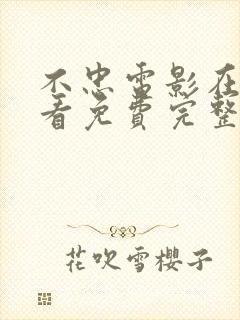 不忠雷影在
看免费完整
花吹雪櫻子